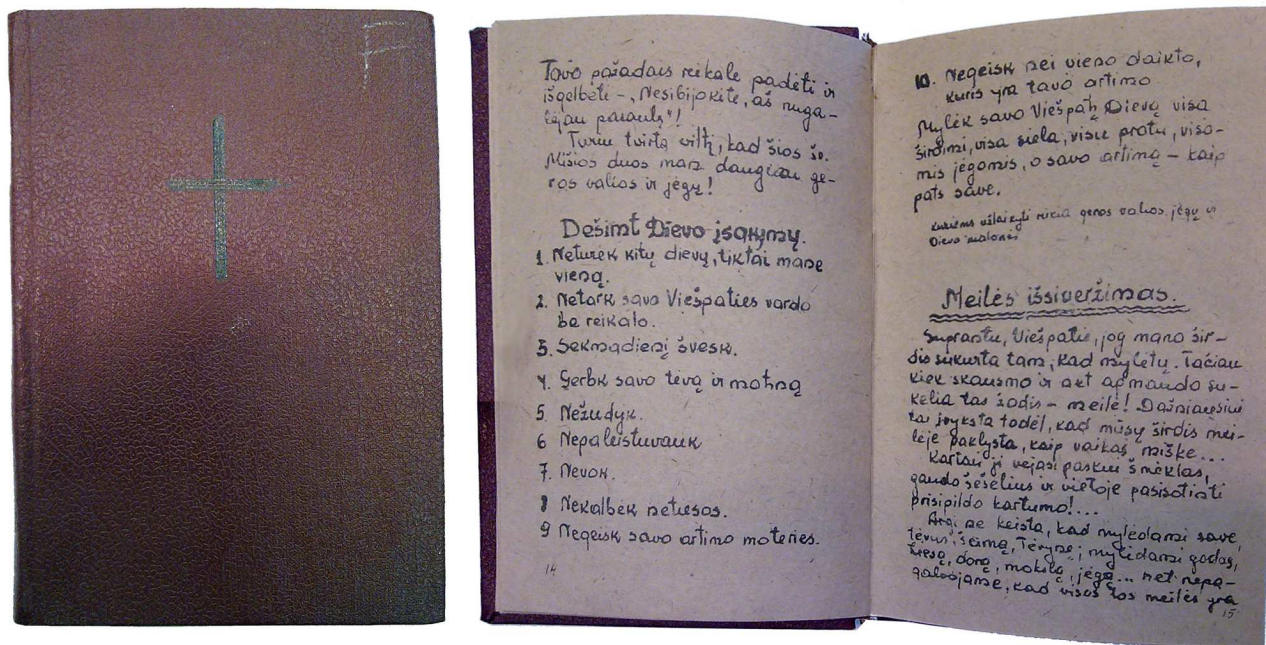 F
Tavo pažadais reikale padėti ir
išgelbėti – „Nesibijokite, aš nuga-
lėjau pasaulį"!
Turiu tvirtą viltį, kad šios šv.
Mišios duos man daugiau ge-
ros valios ir jėgų!
Dešimt Dievo įsakymų.
1. Neturėk kitų dievų, tiktai mane
vieną.
2. Netark savo Viešpaties vardo
be reikalo.
3. Sekmadienį švesk.
4. Gerbk savo tėvą ir motiną
5. Nežudyk.
6 Nepaleistuvauk
7. Nevok.
8 Nekalbėk netiesos.
9 Negeisk savo artimo moteries.
14
10. Negeisk nei vieno daikto,
kuris yra tavo artimo
Mylėk savo Viešpatį Dievą visa
širdimi, visa siela, visu protu, viso-
mis jėgomis, o savo artimą – kaip
pats save.
kuriems užlaikyti reikia geros valios jėgų ir
Dievo malonės
Meilės išsiveržimas.
Suprantu, Viešpatie, jog mano šir-
dis sukurta tam, kad mylėtų. Tačiau
kiek skausmo ir net apmaudo su-
kelia tas žodis – meilė! Dažniausiai
tai įvyksta todėl, kad mūsų širdis mei-
lėje paklysta, kaip vaikas miške...
Kartais ji vejasi paskui šmėklas,
gaudo šešėlius ir vietoje pasisotinti
prisipildo kartumo!...
Argi ne keista, kad mylėdami save,
tėvus, šeimą, Tėvynę; mylėdami garbę,
tiesą, dorą, mokslą, jėgą... net nepa-
galvojame, kad visos tos meilės yra
15